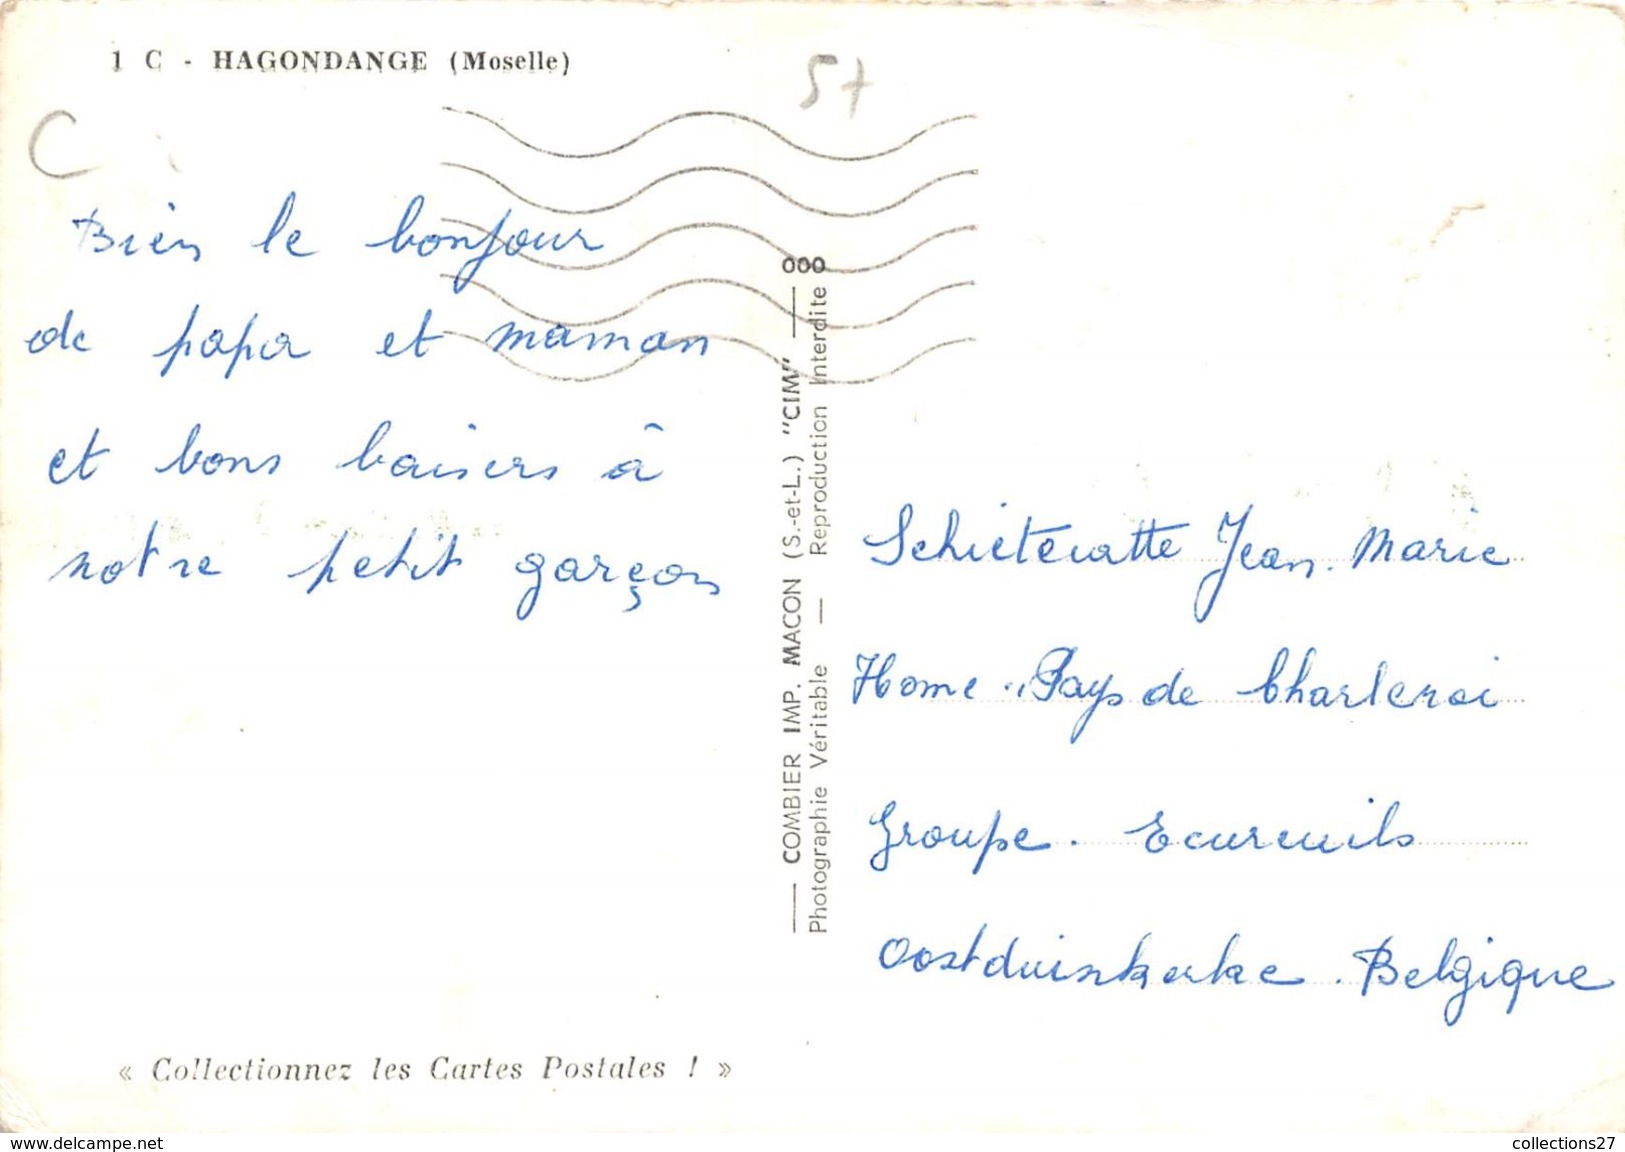 1 C - HAGONDANGE (Moselle)
57
C
Bien le bonjour
de papa et maman
et bons baisers à
notre petit garçon
« Collectionnez les Cartes Postales ! »
COMBIER IMP. MACON (S.-et-L.) "CIM" — 000
Photographie Véritable — Reproduction Interdite
Schietecatte Jean. Marie
Home "Pays de Charleroi
Groupe. Ecureuils
Oostduinkerke. Belgique
www.delcampe.net
collections27